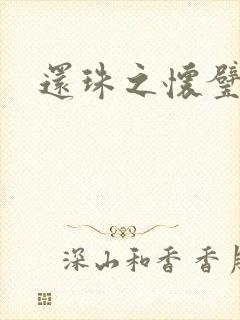 還珠之懷璧
深山和香香